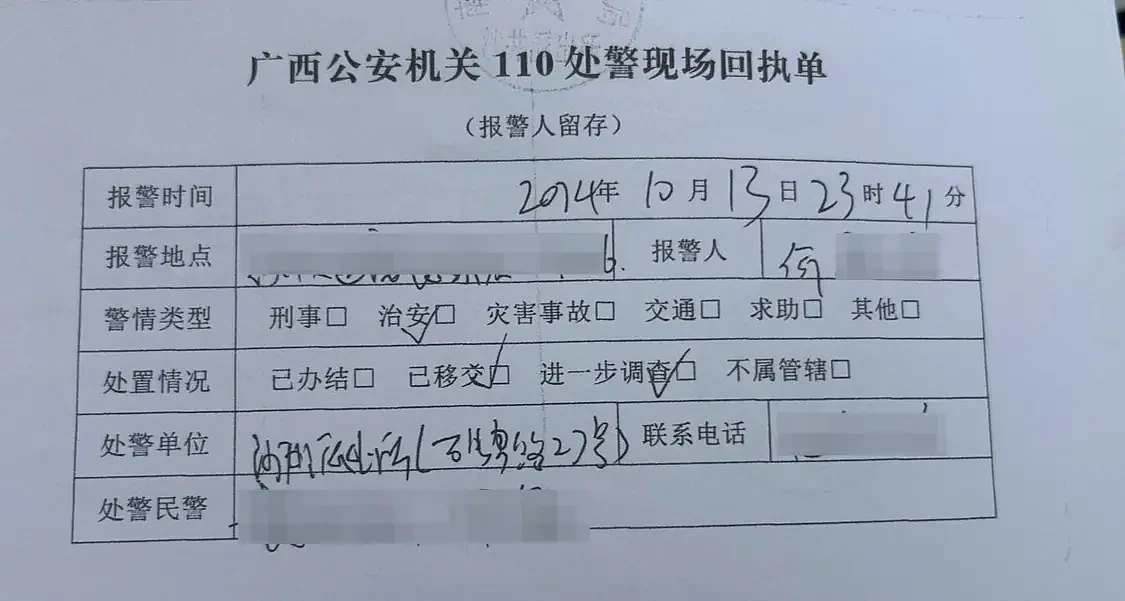 广西公安机关 110 处警现场回执单
（报警人留存）
报警时间 2024年 10月 13日 23时 41分
报警地点 报警人 何
警情类型 刑事□ 治安☑ 灾害事故□ 交通□ 求助□ 其他□
处置情况 已办结□ 已移交☑ 进一步调查☑ 不属管辖□
处警单位 派出所( 路27号) 联系电话
处警民警